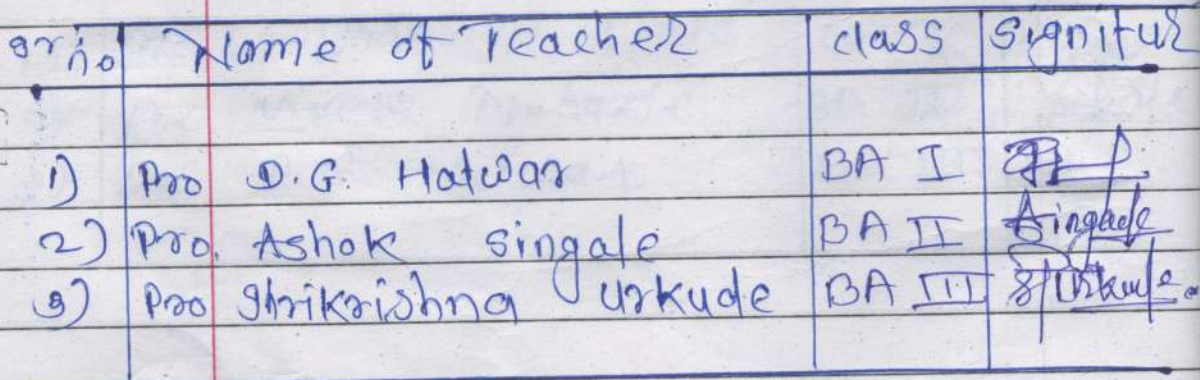 sr no Name of Teacher class Signitur
1) Pro D.G. Hatwar BA I
2) Pro. Ashok Singale BA II Aingade
3) Pro Shrikrishna Urkude BA III Urkude.